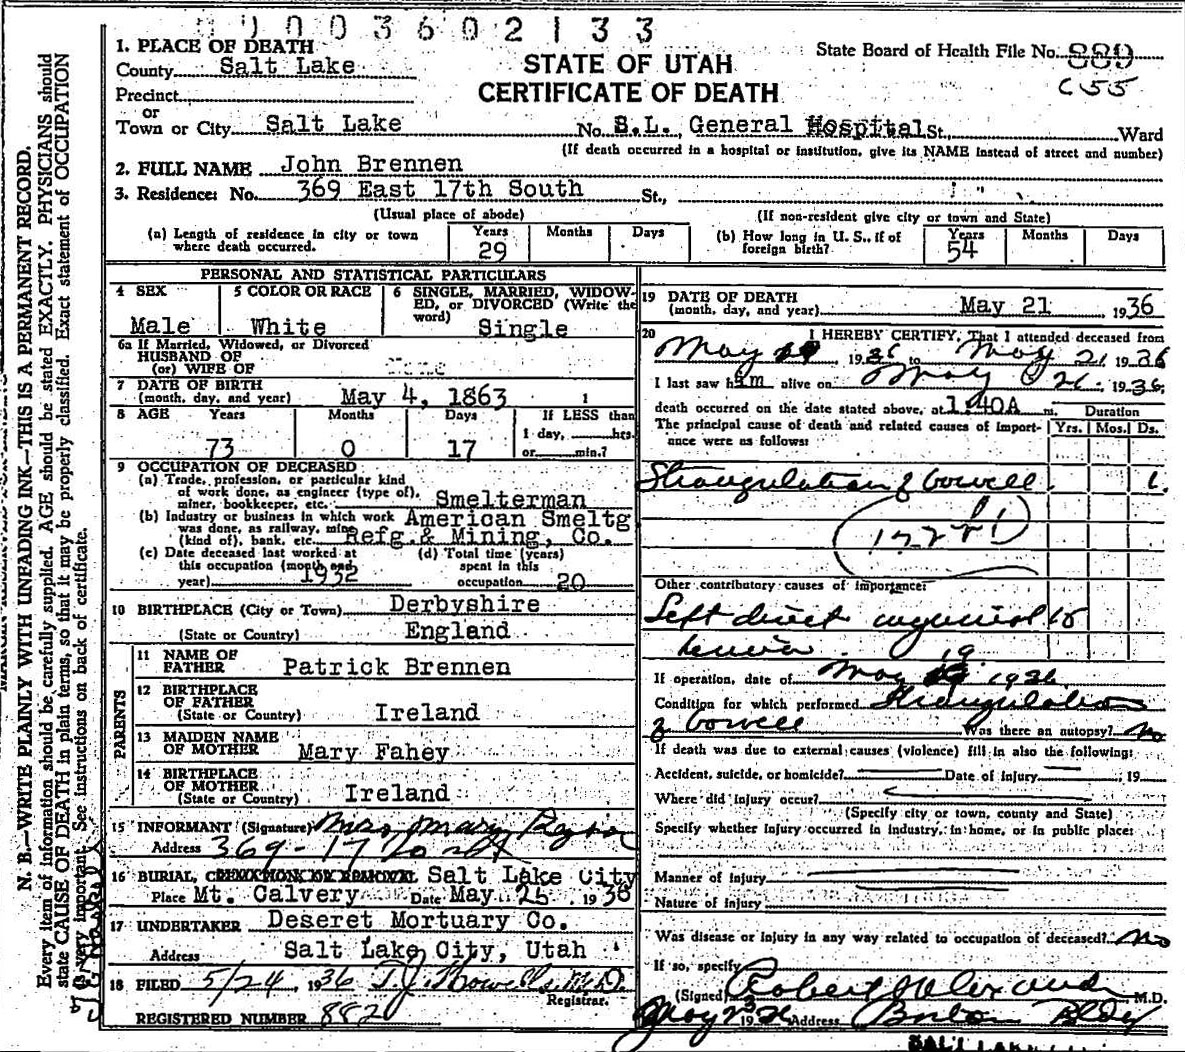 0003602133
1. PLACE OF DEATH
County Salt Lake
STATE OF UTAH
State Board of Health File No. 889
C55
Precinct
CERTIFICATE OF DEATH
or
Town or City Salt Lake No. S.L. General Hospital St., Ward
(If death occurred in a hospital or institution, give its NAME instead of street and number)
2. FULL NAME John Brennen
3. Residence: No. 369 East 17th South St.,
(Usual place of abode) (If non-resident give city or town and State)
(a) Length of residence in city or town where death occurred. Years 29 Months Days
(b) How long in U. S., if of foreign birth? Years 54 Months Days
PERSONAL AND STATISTICAL PARTICULARS
4 SEX Male
5 COLOR OR RACE White
6 SINGLE, MARRIED, WIDOWED, or DIVORCED (Write the word) Single
6a If Married, Widowed, or Divorced
HUSBAND OF
(or) WIFE OF
7 DATE OF BIRTH
(month, day, and year) May 4, 1863
8 AGE Years 73 Months 0 Days 17 If LESS than 1 day, hrs. or min.?
9 OCCUPATION OF DECEASED
(a) Trade, profession, or particular kind of work done, as engineer (type of), miner, bookkeeper, etc. Smelterman
(b) Industry or business in which work was done, as railway, mine (kind of), bank, etc. American Smeltg Refg.& Mining, Co.
(c) Date deceased last worked at this occupation (month and year) 1932
(d) Total time (years) spent in this occupation 20
10 BIRTHPLACE (City or Town) Derbyshire
(State or Country) England
PARENTS
11 NAME OF FATHER Patrick Brennen
12 BIRTHPLACE OF FATHER
(State or Country) Ireland
13 MAIDEN NAME OF MOTHER Mary Fahey
14 BIRTHPLACE OF MOTHER
(State or Country) Ireland
15 INFORMANT (Signature) Mrs Mary
Address 369 - 17
16 BURIAL, CREMATION OR REMOVAL Salt Lake City
Place Mt. Calvery Date May 25 1936
17 UNDERTAKER Deseret Mortuary Co.
Address Salt Lake City, Utah
18 FILED 5/24 1936 T.J. Howells M.D.
Registrar.
REGISTERED NUMBER 882
19 DATE OF DEATH
(month, day, and year) May 21 1936
20 I HEREBY CERTIFY, That I attended deceased from
May 19 1936 to May 21 1936
I last saw him alive on May 21 1936,
death occurred on the date stated above, at 1:40A m. Duration
The principal cause of death and related causes of importance were as follows: Yrs. Mos. Ds.
Strangulation of bowell 1.
Other contributory causes of importance:
Left direct inguinal
hernia
If operation, date of May 19 1936
Condition for which performed Strangulation
of bowell Was there an autopsy? No
If death was due to external causes (violence) fill in also the following:
Accident, suicide, or homicide? Date of injury , 19
Where did injury occur?
(Specify city or town, county and State)
Specify whether injury occurred in industry, in home, or in public place:
Manner of injury
Nature of injury
Was disease or injury in any way related to occupation of deceased? No
If so, specify
(Signed) Robert Alexander M.D.
May 23 1936 Address Boston Bldg
SALT LAKE
N. B.—WRITE PLAINLY WITH UNFADING INK—THIS IS A PERMANENT RECORD.
Every item of information should be carefully supplied. AGE should be stated EXACTLY. PHYSICIANS should
state CAUSE OF DEATH in plain terms, so that it may be properly classified. Exact statement of OCCUPATION
is very important. See instructions on back of certificate.